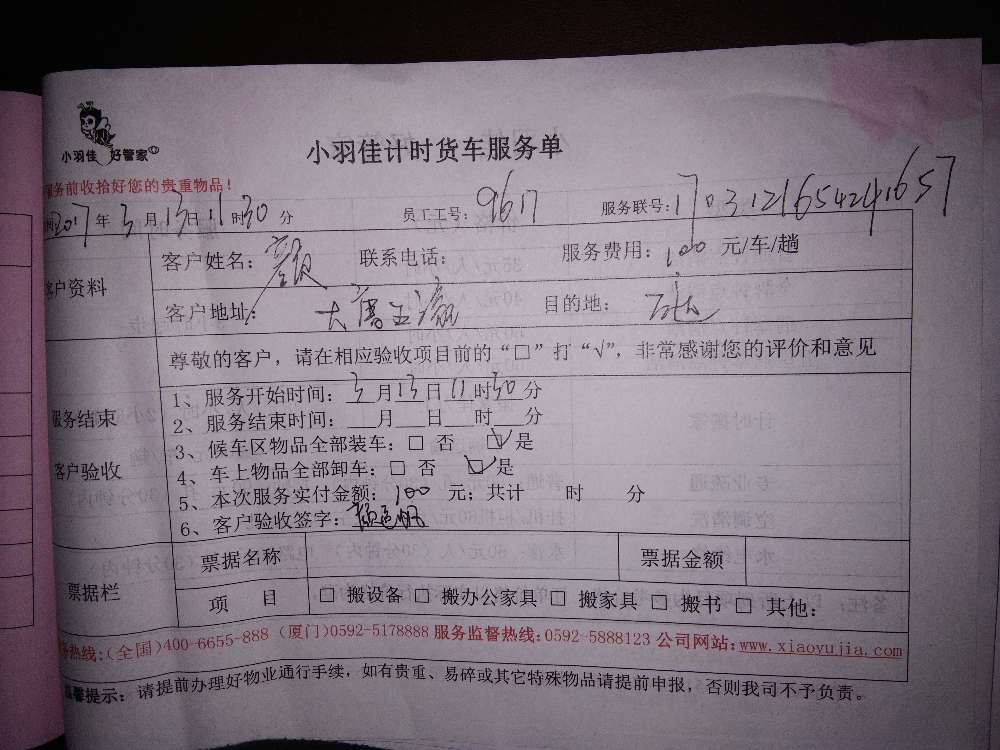 小羽佳 好管家
小羽佳计时货车服务单
服务前收拾好您的贵重物品！
2017年3月13日11时30分 员工工号：9617 服务联号：1703121654241657
客户资料
客户姓名： 联系电话： 服务费用：100元/车/趟
客户地址： 目的地：
尊敬的客户，请在相应验收项目前的“□”打“√”，非常感谢您的评价和意见
服务结束
客户验收
1、服务开始时间：3月13日11时30分
2、服务结束时间：___月___日___时___分
3、候车区物品全部装车：□ 否 ☑是
4、车上物品全部卸车：□ 否 ☑是
5、本次服务实付金额：100元；共计 时 分
6、客户验收签字：
票据栏
票据名称 票据金额
项 目 □ 搬设备 □ 搬办公家具 □ 搬家具 □ 搬书 □ 其他：
务热线：(全国)400-6655-888 (厦门)0592-5178888 服务监督热线：0592-5888123 公司网站：www.xiaoyujia.com
温馨提示：请提前办理好物业通行手续，如有贵重、易碎或其它特殊物品请提前申报，否则我司不予负责。